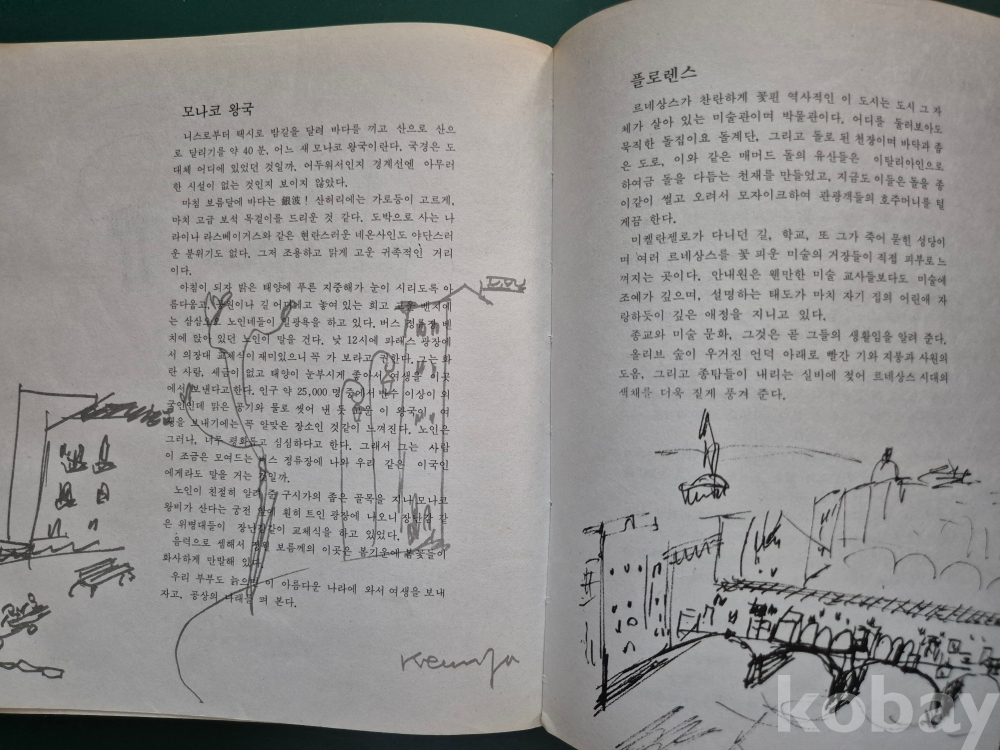 모나코 왕국
니스로부터 택시로 밤길을 달려 바다를 끼고 산으로 산으
로 달리기를 약 40분, 어느 새 모나코 왕국이란다. 국경은 도
대체 어디에 있었던 것일까. 어두워서인지 경계선엔 아무러
한 시설이 없는 것인지 보이지 않았다.
마침 보름달에 바다는 銀波! 산허리에는 가로등이 고르게,
마치 고급 보석 목걸이를 드리운 것 같다. 도박으로 사는 나
라이나 라스베이거스와 같은 현란스러운 네온사인도 야단스러
운 분위기도 없다. 그저 조용하고 맑게 고운 귀족적인 거리
이다.
아침이 되자 밝은 태양에 푸른 지중해가 눈이 시리도록 아
름다웁고, 공원이나 길 어디에고 놓여 있는 희고 벤치에
는 삼삼오오 노인네들이 일광욕을 하고 있다. 버스 정류장 벤
치에 앉아 있던 노인이 말을 건다. 낮 12시에 파래스 광장에
서 의장대 교체식이 재미있으니 꼭 가 보라고 권한다. 그는 화
란 사람, 세금이 없고 태양이 눈부시게 좋아서 여생을 이곳
에서 보낸다고 한다. 인구 약 25,000 명 중에서 반수 이상이 외
국인인데 맑은 공기와 물로 씻어 낸 듯 이 왕국이 여
생을 보내기에는 꼭 알맞은 장소인 것같이 느껴진다. 노인은
그러나, 너무 평화롭고 심심하다고 한다. 그래서 그는 사람
이 조금은 모여드는 버스 정류장에 나와 우리 같은 이국인
에게라도 말을 거는 것일까.
노인이 친절히 알려 준 구시가의 좁은 골목을 지나 모나코
왕비가 산다는 궁전 앞에 훤히 트인 광장에 나오니 장난감 같
은 위병대들이 장난감같이 교체식을 하고 있었다.
음력으로 셈해서 정월 보름께의 이곳은 봄기운에 봄꽃들이
화사하게 만발해 있다.
우리 부부도 늙으면 이 아름다운 나라에 와서 여생을 보내
자고, 공상의 나래를 펴 본다.
플로렌스
르네상스가 찬란하게 꽃핀 역사적인 이 도시는 도시 그 자
체가 살아 있는 미술관이며 박물관이다. 어디를 둘러보아도
묵직한 돌집이요 돌계단, 그리고 돌로 된 천장이며 바닥과 좁
은 도로, 이와 같은 매머드 돌의 유산들은 이탈리아인으로
하여금 돌을 다듬는 천재를 만들었고, 지금도 이들은 돌을 종
이같이 썰고 오려서 모자이크하여 관광객들의 호주머니를 털
게끔 한다.
미켈란젤로가 다니던 길, 학교, 또 그가 죽어 묻힌 성당이
며 여러 르네상스를 꽃 피운 미술의 거장들이 직접 피부로 느
껴지는 곳이다. 안내원은 웬만한 미술 교사들보다도 미술에
조예가 깊으며, 설명하는 태도가 마치 자기 집의 어린애 자
랑하듯이 깊은 애정을 지니고 있다.
종교와 미술 문화, 그것은 곧 그들의 생활임을 알려 준다.
올리브 숲이 우거진 언덕 아래로 빨간 기와 지붕과 사원의
도움, 그리고 종탑들이 내리는 실비에 젖어 르네상스 시대의
색채를 더욱 짙게 풍겨 준다.
kobay